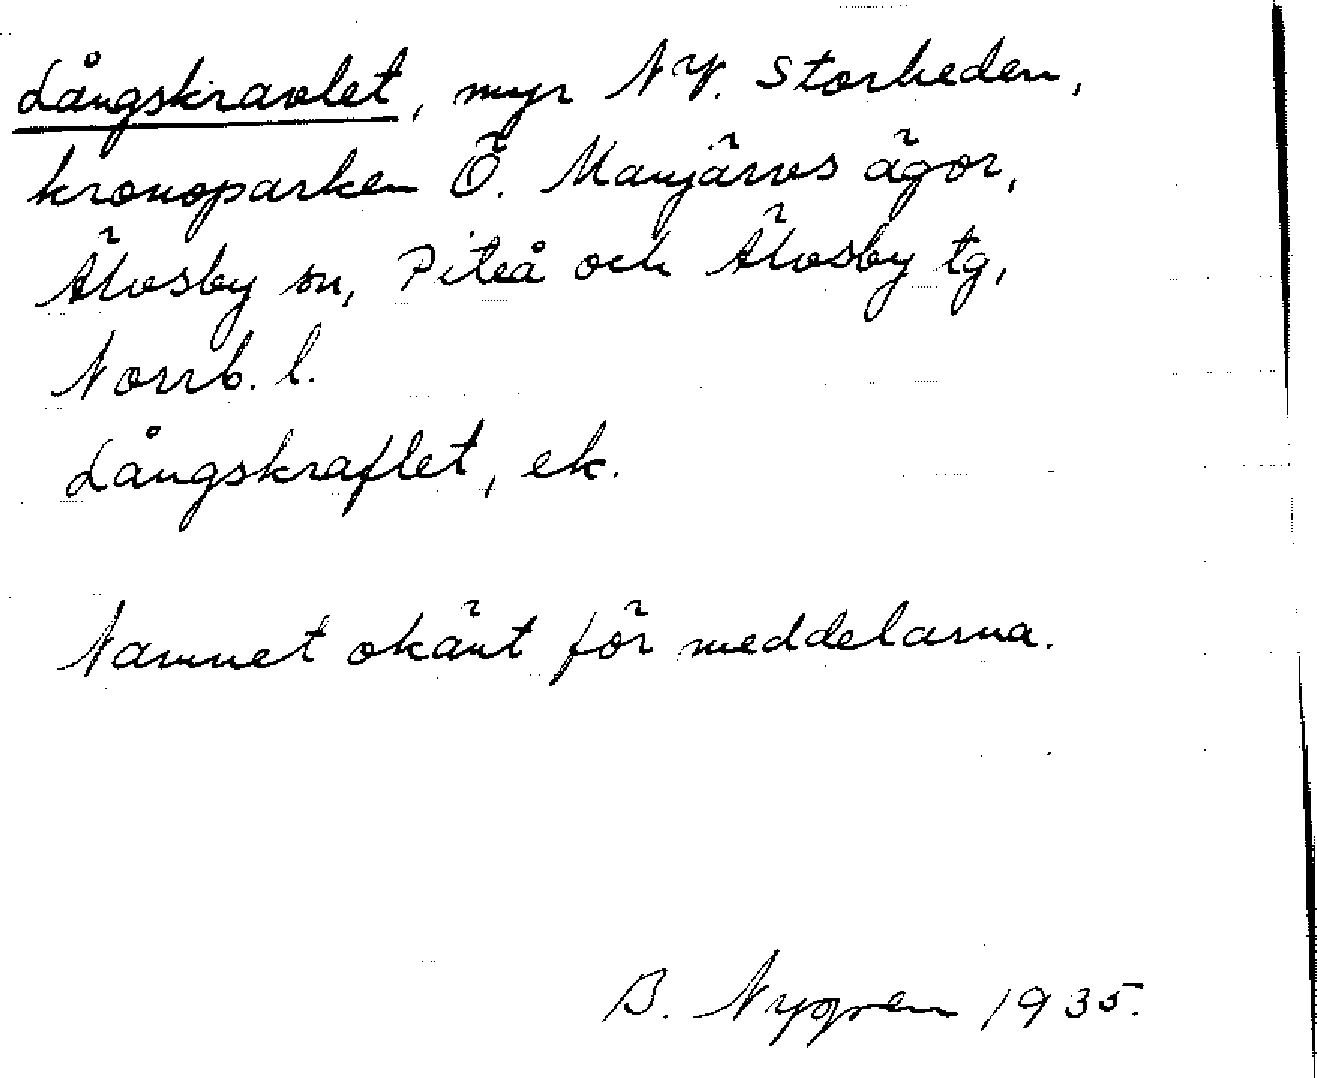 Långskravlet, myr NV. Storheden,
kronoparken Ö. Manjärvs ägor,
Älvsby sn, Piteå och Älvsby tg,
Norrb. l.
Långskraflet, ek.
Namnet okänt för meddelarna.
B. Nygren 1935.